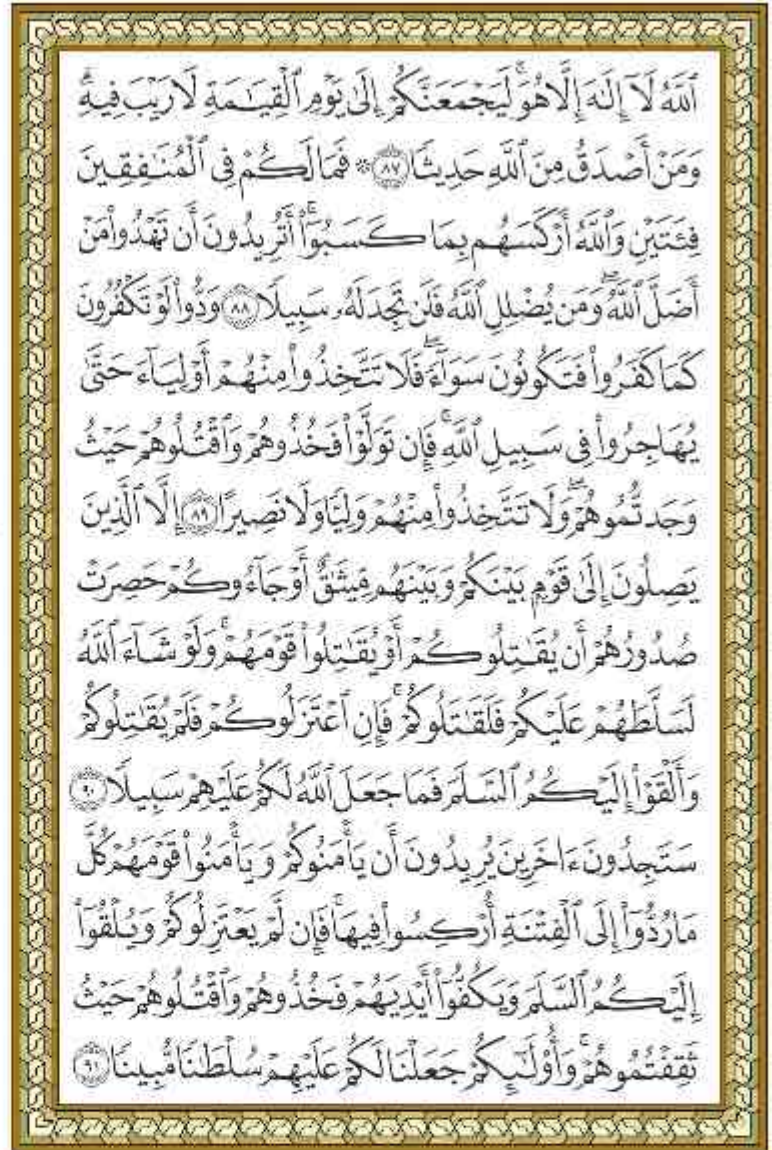 ٱللَّهُ لَآ إِلَٰهَ إِلَّا هُوَۚ لَيَجْمَعَنَّكُمْ إِلَىٰ يَوْمِ ٱلْقِيَٰمَةِ لَا رَيْبَ فِيهِۗ
وَمَنْ أَصْدَقُ مِنَ ٱللَّهِ حَدِيثًا ٨٧ ۞ فَمَا لَكُمْ فِى ٱلْمُنَٰفِقِينَ
فِئَتَيْنِ وَٱللَّهُ أَرْكَسَهُم بِمَا كَسَبُوٓا۟ۚ أَتُرِيدُونَ أَن تَهْدُوا۟ مَنْ
أَضَلَّ ٱللَّهُۖ وَمَن يُضْلِلِ ٱللَّهُ فَلَن تَجِدَ لَهُۥ سَبِيلًا ٨٨ وَدُّوا۟ لَوْ تَكْفُرُونَ
كَمَا كَفَرُوا۟ فَتَكُونُونَ سَوَآءًۖ فَلَا تَتَّخِذُوا۟ مِنْهُمْ أَوْلِيَآءَ حَتَّىٰ
يُهَاجِرُوا۟ فِى سَبِيلِ ٱللَّهِۚ فَإِن تَوَلَّوْا۟ فَخُذُوهُمْ وَٱقْتُلُوهُمْ حَيْثُ
وَجَدتُّمُوهُمْۖ وَلَا تَتَّخِذُوا۟ مِنْهُمْ وَلِيًّا وَلَا نَصِيرًا ٨٩ إِلَّا ٱلَّذِينَ
يَصِلُونَ إِلَىٰ قَوْمٍۭ بَيْنَكُمْ وَبَيْنَهُم مِّيثَٰقٌ أَوْ جَآءُوكُمْ حَصِرَتْ
صُدُورُهُمْ أَن يُقَٰتِلُوكُمْ أَوْ يُقَٰتِلُوا۟ قَوْمَهُمْۚ وَلَوْ شَآءَ ٱللَّهُ
لَسَلَّطَهُمْ عَلَيْكُمْ فَلَقَٰتَلُوكُمْۚ فَإِنِ ٱعْتَزَلُوكُمْ فَلَمْ يُقَٰتِلُوكُمْ
وَأَلْقَوْا۟ إِلَيْكُمُ ٱلسَّلَمَ فَمَا جَعَلَ ٱللَّهُ لَكُمْ عَلَيْهِمْ سَبِيلًا ٩٠
سَتَجِدُونَ ءَاخَرِينَ يُرِيدُونَ أَن يَأْمَنُوكُمْ وَيَأْمَنُوا۟ قَوْمَهُمْ كُلَّ
مَا رُدُّوٓا۟ إِلَى ٱلْفِتْنَةِ أُرْكِسُوا۟ فِيهَاۚ فَإِن لَّمْ يَعْتَزِلُوكُمْ وَيُلْقُوٓا۟
إِلَيْكُمُ ٱلسَّلَمَ وَيَكُفُّوٓا۟ أَيْدِيَهُمْ فَخُذُوهُمْ وَٱقْتُلُوهُمْ حَيْثُ
ثَقِفْتُمُوهُمْۚ وَأُو۟لَٰٓئِكُمْ جَعَلْنَا لَكُمْ عَلَيْهِمْ سُلْطَٰنًا مُّبِينًا ٩١